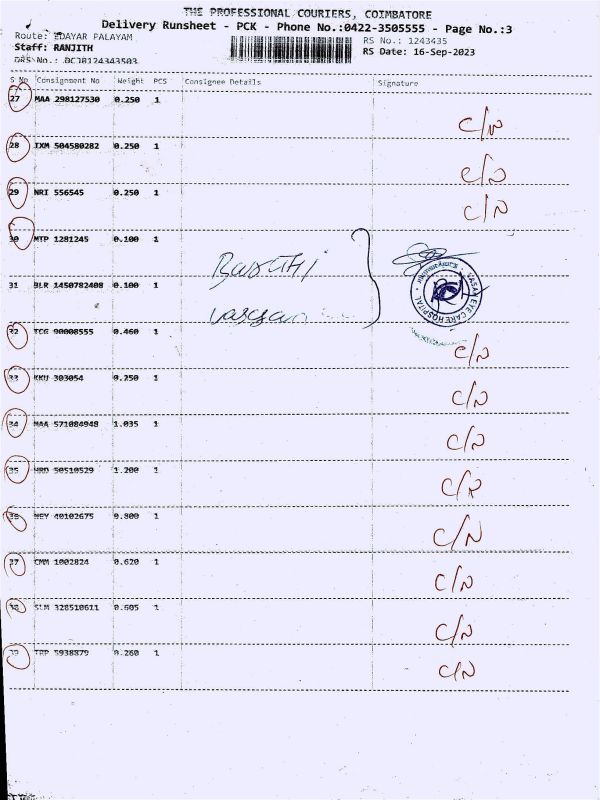 THE PROFESSIONAL COURIERS, COIMBATORE
Delivery Runsheet - PCK - Phone No.:0422-3505555 - Page No.:3
Route: EDAYAR PALAYAM
RS No.: 1243435
Staff: RANJITH
RS Date: 16-Sep-2023
DRS No.: DCJ0124343503
S No Consignment No Weight PCS Consignee Details Signature
27 MAA 298127530 0.250 1
C/N
28 IXM 504580282 0.250 1
C/N
29 NRI 556545 0.250 1
C/N
30 MTP 1281245 0.100 1
31 BLR 1450782408 0.100 1
VASAN EYE CARE HOSPITAL
32 TCG 90008555 0.460 1
C/N
33 KKU 303054 0.250 1
C/N
34 MAA 571084948 1.035 1
C/N
35 HRD 50510529 1.200 1
C/R
36 NEY 40102675 0.800 1
C/N
37 CMM 1002824 0.620 1
C/N
38 SLM 328510611 0.605 1
C/N
39 TRP 5938879 0.260 1
C/N